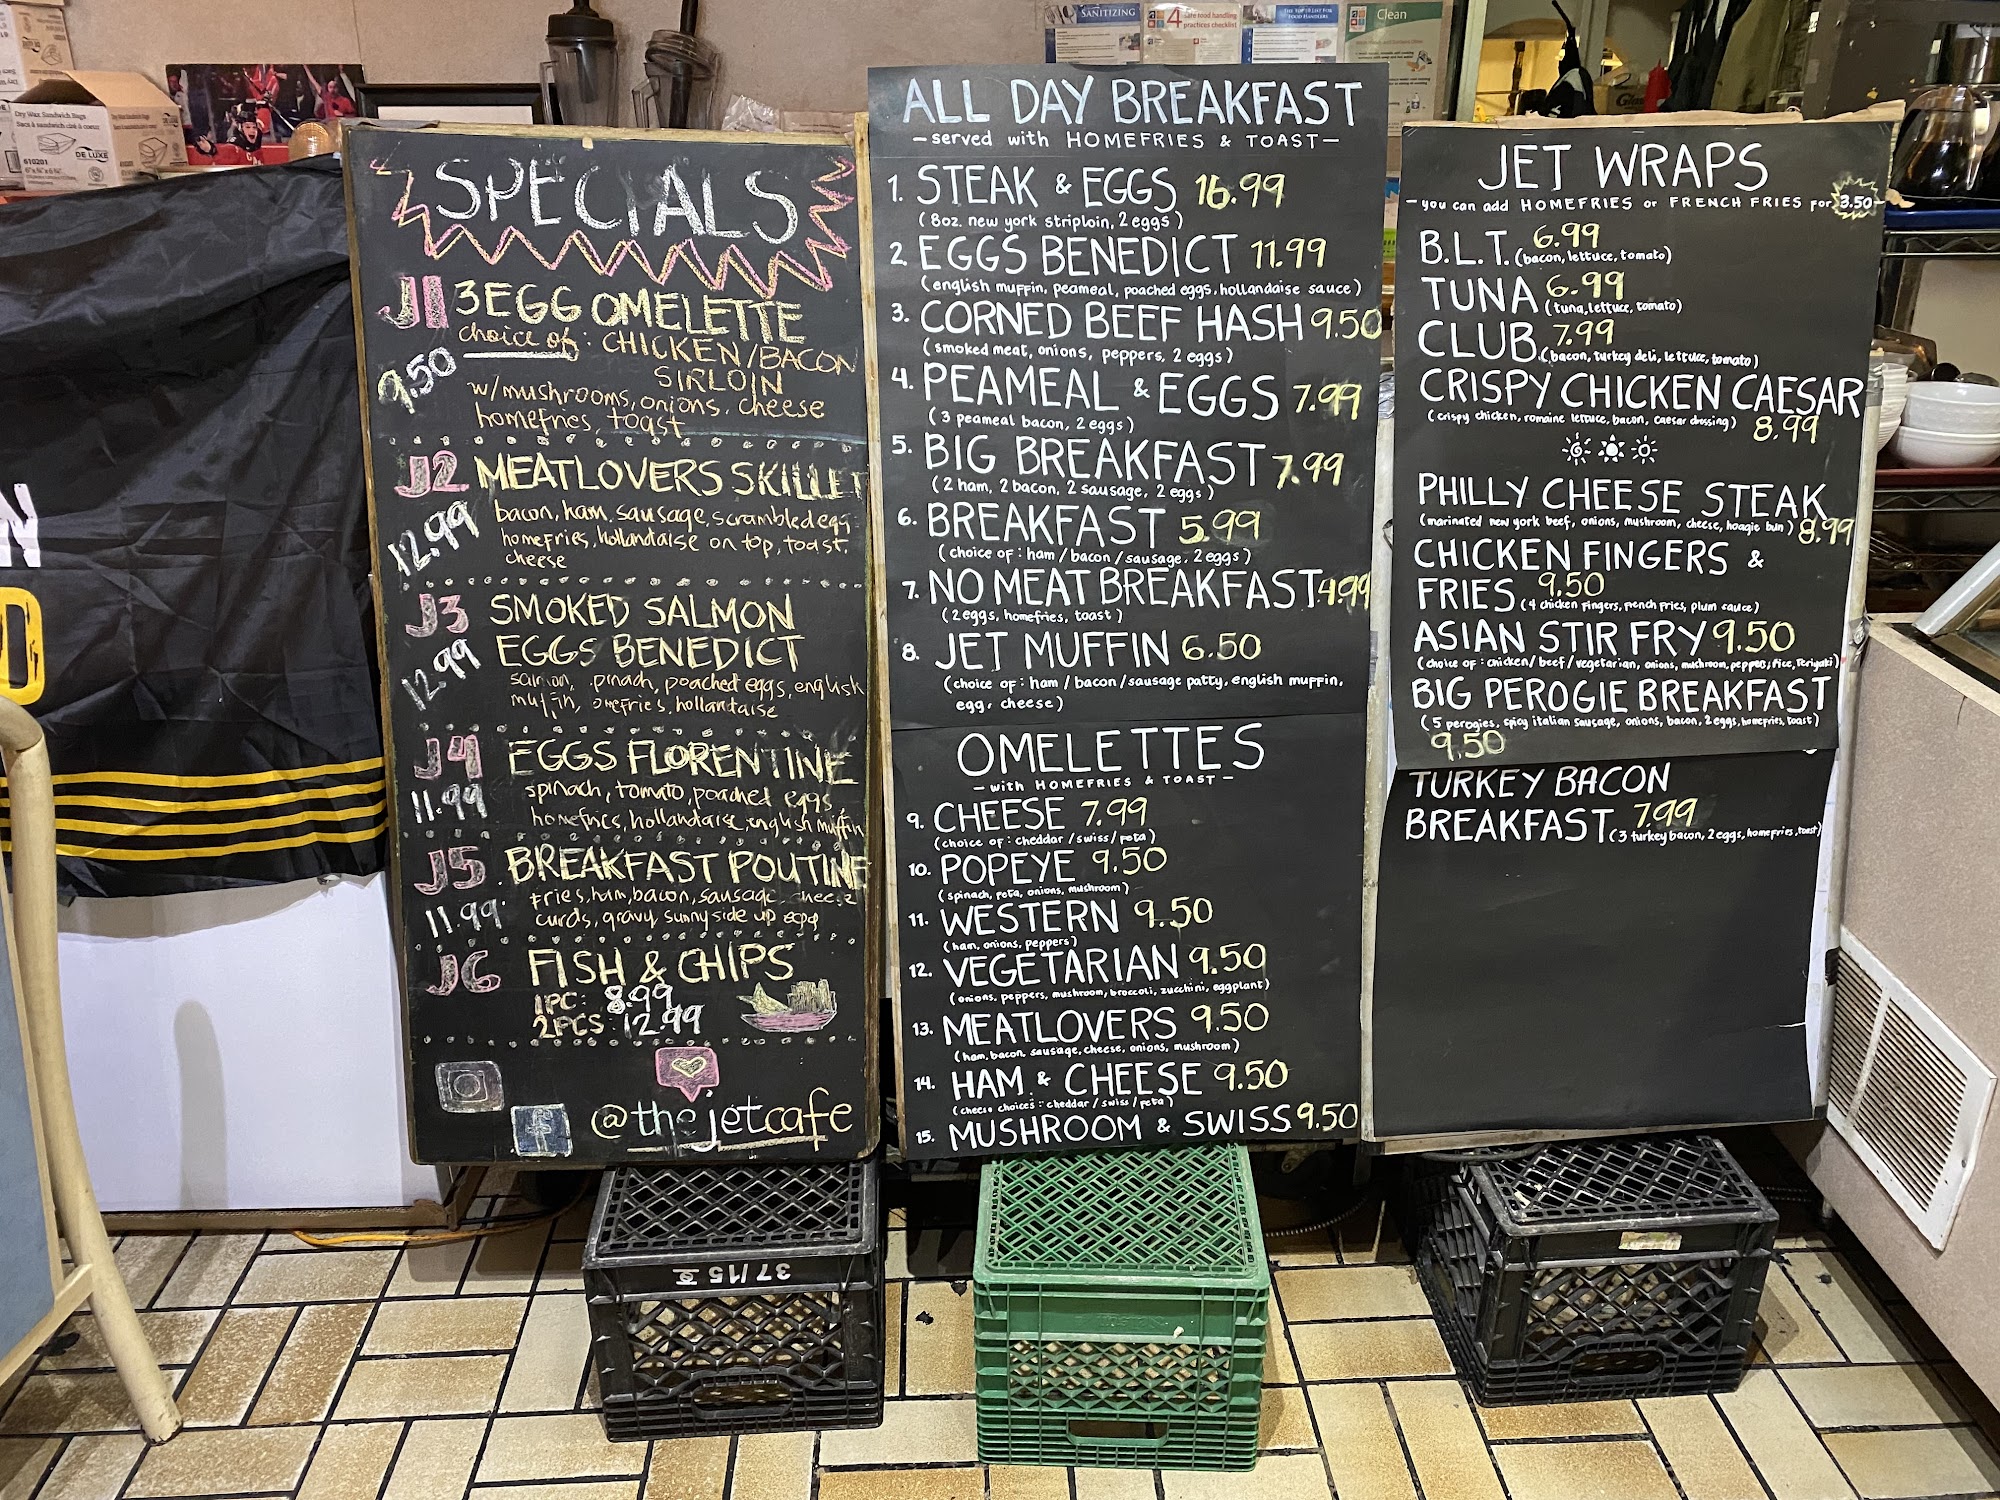 Dry Wax Sandwich Bags
Sacs à sandwich ciré à coeur
DE LUXE
610201
SANITIZING
4 safe food handling
practices checklist
THE TOP 10 LIST FOR
FOOD HANDLERS
Clean
SPECIALS
J1 3 EGG OMELETTE
9.50
choice of: CHICKEN/BACON
SIRLOIN
w/mushrooms, onions, cheese
homefries, toast
J2 MEATLOVERS SKILLET
12.99
bacon, ham, sausage, scrambled egg
homefries, hollandaise on top, toast,
cheese
J3 SMOKED SALMON
EGGS BENEDICT
12.99
salmon, spinach, poached eggs, english
muffin, homefries, hollandaise
J4 EGGS FLORENTINE
11.99
spinach, tomato, poached eggs,
homefries, hollandaise, english muffin
J5 BREAKFAST POUTINE
11.99
fries, ham, bacon, sausage, cheese
curds, gravy, sunny side up egg
J6 FISH & CHIPS
1PC: 8.99
2PCS: 12.99
@thejetcafe
ALL DAY BREAKFAST
- served with HOMEFRIES & TOAST -
1. STEAK & EGGS 16.99
(8oz. new york striploin, 2 eggs)
2. EGGS BENEDICT 11.99
(english muffin, peameal, poached eggs, hollandaise sauce)
3. CORNED BEEF HASH 9.50
(smoked meat, onions, peppers, 2 eggs)
4. PEAMEAL & EGGS 7.99
(3 peameal bacon, 2 eggs)
5. BIG BREAKFAST 7.99
(2 ham, 2 bacon, 2 sausage, 2 eggs)
6. BREAKFAST 5.99
(choice of: ham / bacon / sausage, 2 eggs)
7. NO MEAT BREAKFAST 4.99
(2 eggs, homefries, toast)
8. JET MUFFIN 6.50
(choice of: ham / bacon / sausage patty, english muffin,
egg, cheese)
OMELETTES
- with HOMEFRIES & TOAST -
9. CHEESE 7.99
(choice of: cheddar / swiss / feta)
10. POPEYE 9.50
(spinach, feta, onions, mushroom)
11. WESTERN 9.50
(ham, onions, peppers)
12. VEGETARIAN 9.50
(onions, peppers, mushroom, broccoli, zucchini, eggplant)
13. MEATLOVERS 9.50
(ham, bacon, sausage, cheese, onions, mushroom)
14. HAM & CHEESE 9.50
(cheese choices: cheddar / swiss / feta)
15. MUSHROOM & SWISS 9.50
JET WRAPS
- you can add HOMEFRIES or FRENCH FRIES for 3.50 -
B.L.T. 6.99
(bacon, lettuce, tomato)
TUNA 6.99
(tuna, lettuce, tomato)
CLUB 7.99
(bacon, turkey deli, lettuce, tomato)
CRISPY CHICKEN CAESAR
(crispy chicken, romaine lettuce, bacon, caesar dressing) 8.99
PHILLY CHEESE STEAK
(marinated new york beef, onions, mushroom, cheese, hoagie bun) 8.99
CHICKEN FINGERS &
FRIES 9.50
(4 chicken fingers, french fries, plum sauce)
ASIAN STIR FRY 9.50
(choice of: chicken / beef / vegetarian, onions, mushroom, peppers, rice, teriyaki)
BIG PEROGIE BREAKFAST
(5 perogies, spicy italian sausage, onions, bacon, 2 eggs, homefries, toast)
9.50
TURKEY BACON
BREAKFAST 7.99
(3 turkey bacon, 2 eggs, homefries, toast)
37/15